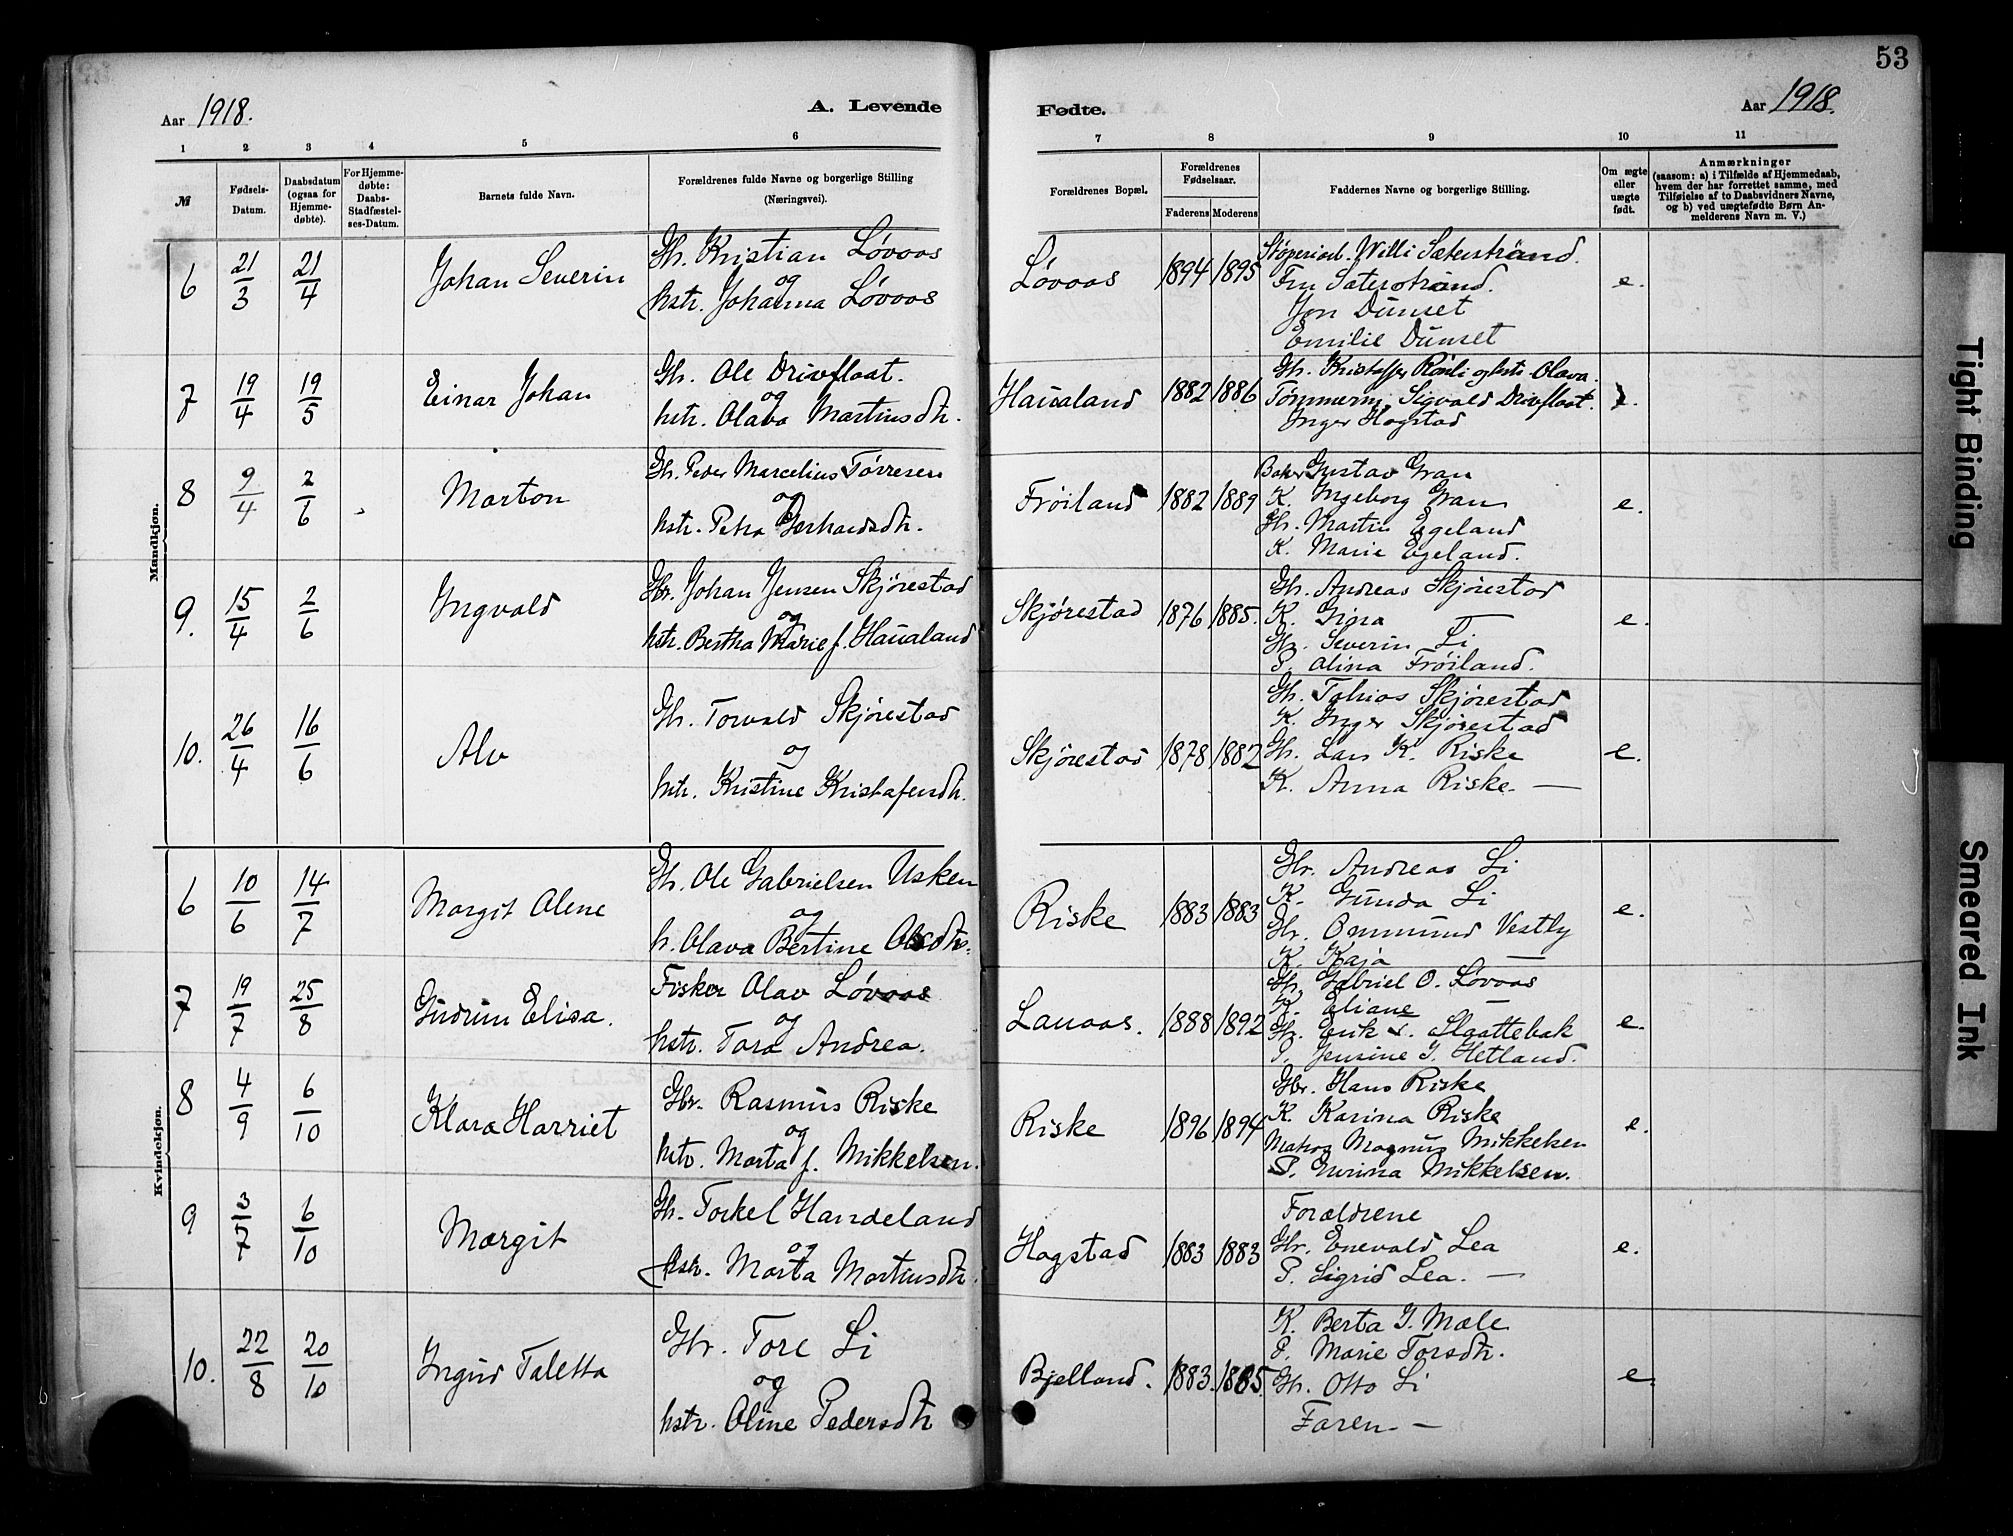 53
Aar 1918.
A. Levende
Fødte.
Aar 1918.
1 2 3 4 5 6 7 8 9 10 11
№
Fødsels-
Datum.
Daabsdatum
(ogsaa for
Hjemme-
døbte).
For Hjemme-
døbte:
Daabs-
Stadfæstel-
ses-Datum.
Barnets fulde Navn.
Forældrenes fulde Navne og borgerlige Stilling
(Næringsvei).
Forældrenes Bopæl.
Forældrenes
Fødselsaar.
Faderens Moderens
Faddernes Navne og borgerlige Stilling.
Om ægte
eller
uægte
født.
Anmærkninger
(saasom: a) i Tilfælde af Hjemmedaab,
hvem der har forrettet samme, med
Tilføielse af to Daabsvidners Navne,
og b) ved uægtefødte Børn An-
melderens Navn m. V.)
Mandkjøn.
6 21/3 21/4 Johan Severin
Gh. Kristian Løvaas
og
hstr. Johanna Løvaas
Løvaas 1894 1895
Willi Sæterstrand.
Fru Sæterstrand.
Jon Dünset
Emilie Dünset
e.
7 19/4 19/5 Einar Johan
Gh. Ole Drivfloat.
og
hstr. Olava Martinsdtr.
Haualand 1882 1886
Gh. Kristoffer Rönli og hstr. Olava.
Tømmerm. Sigvald Drivfloat.
Inger Hogstad
e.
8 9/4 2/6 Marton
Gh. Peder Marcelius Tørresen
og
hstr. Petra Gerhardsdtr.
Frøiland 1882 1889
Baker Gustav Gran
K. Ingeborg Gran
Gh. Martin Egeland
K. Marie Egeland.
e.
9. 15/4 2/6 Ingvald
Gbr. Johan Jensen Skjørestad
og
hstr. Bertha Marie f. Haualand
Skjørestad 1876 1885.
Gh. Andreas Skjørestad
K. Gina —
Gh. Severin Li
P. Olina Frøiland.
e.
10. 26/4 16/6 Alv
Gh. Torvald Skjørestad
og
hstr. Kristine Kristafersdtr.
Skjørestad 1878 1882
Gh. Tobias Skjørestad
K. Inger Skjørestad
Gh. Lars K. Riske
K. Anna Riske. —
e.
Kvindekjøn.
6 10/6 14/7 Margit Alene
Gh. Ole Gabrielsen Usken
og
h. Olava Bertine Olsdtr.
Riske 1883 1883
Gbr. Andreas Li
K. Gunda Li
Gh. Ommund Vestly
K. Kaja —
e.
7 19/7 25/8 Gudrun Elisa.
Fisker Olav Løvaas
og
hstr. Tora Andrea.
Lauaas. 1888 1892
Gh. Gabriel O. Løvaas
K. Eliane —
Gh. Erik L. Slaattebak
P. Jensine J. Hetland.
e.
8 4/9 6/10 Klara Harriet
Gbr. Rasmus Riske
og
hstr. Marta f. Mikkelsen.
Riske 1896 1894
Gbr. Hans Riske
K. Karina Riske
Matros Magnus Mikkelsen
P. Enrina Mikkelsen.
e.
9 3/7 6/10 Margit
Gh. Torkel Handeland
og
hstr. Marta Martinsdtr.
Hogstad 1883 1883
Forældrene
Gbr. Enevald Lea
P. Sigrid Lea. —
e.
10. 22/8 20/10 Ingrid Taletta
Gbr. Tore Li
og
hstr. Oline Pedersdtr
Bjelland. 1883. 1885.
K. Berta G. Mæle
P. Marie Torsdtr.
Gh. Otto Li
Faren —
e.
Tight Binding
Smeared Ink